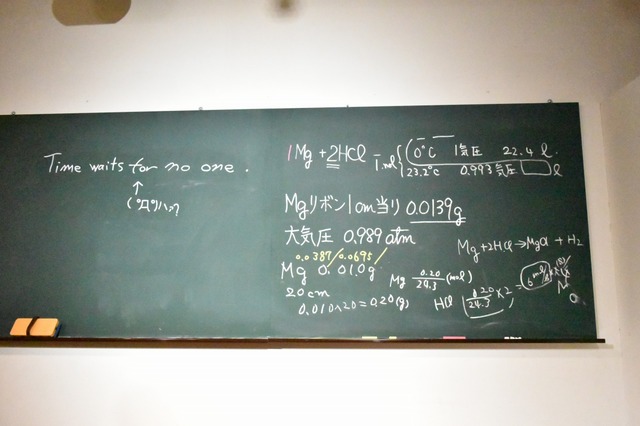 Time waits for no one.
↑
(゚Д゚)ハッ?
1Mg + 2HCl
1mol
0℃ 1気圧 22.4 l
23.2℃ 0.993気圧 □ l
Mgリボン1cm当り 0.0139g
大気圧 0.989atm
0.0387/0.0695/
Mg 0.010g
20cm
0.010×20=0.20(g)
Mg + 2HCl → MgCl + H2
Mg 0.20/24.3 (mol)
HCl 0.20/24.3 × 2 =